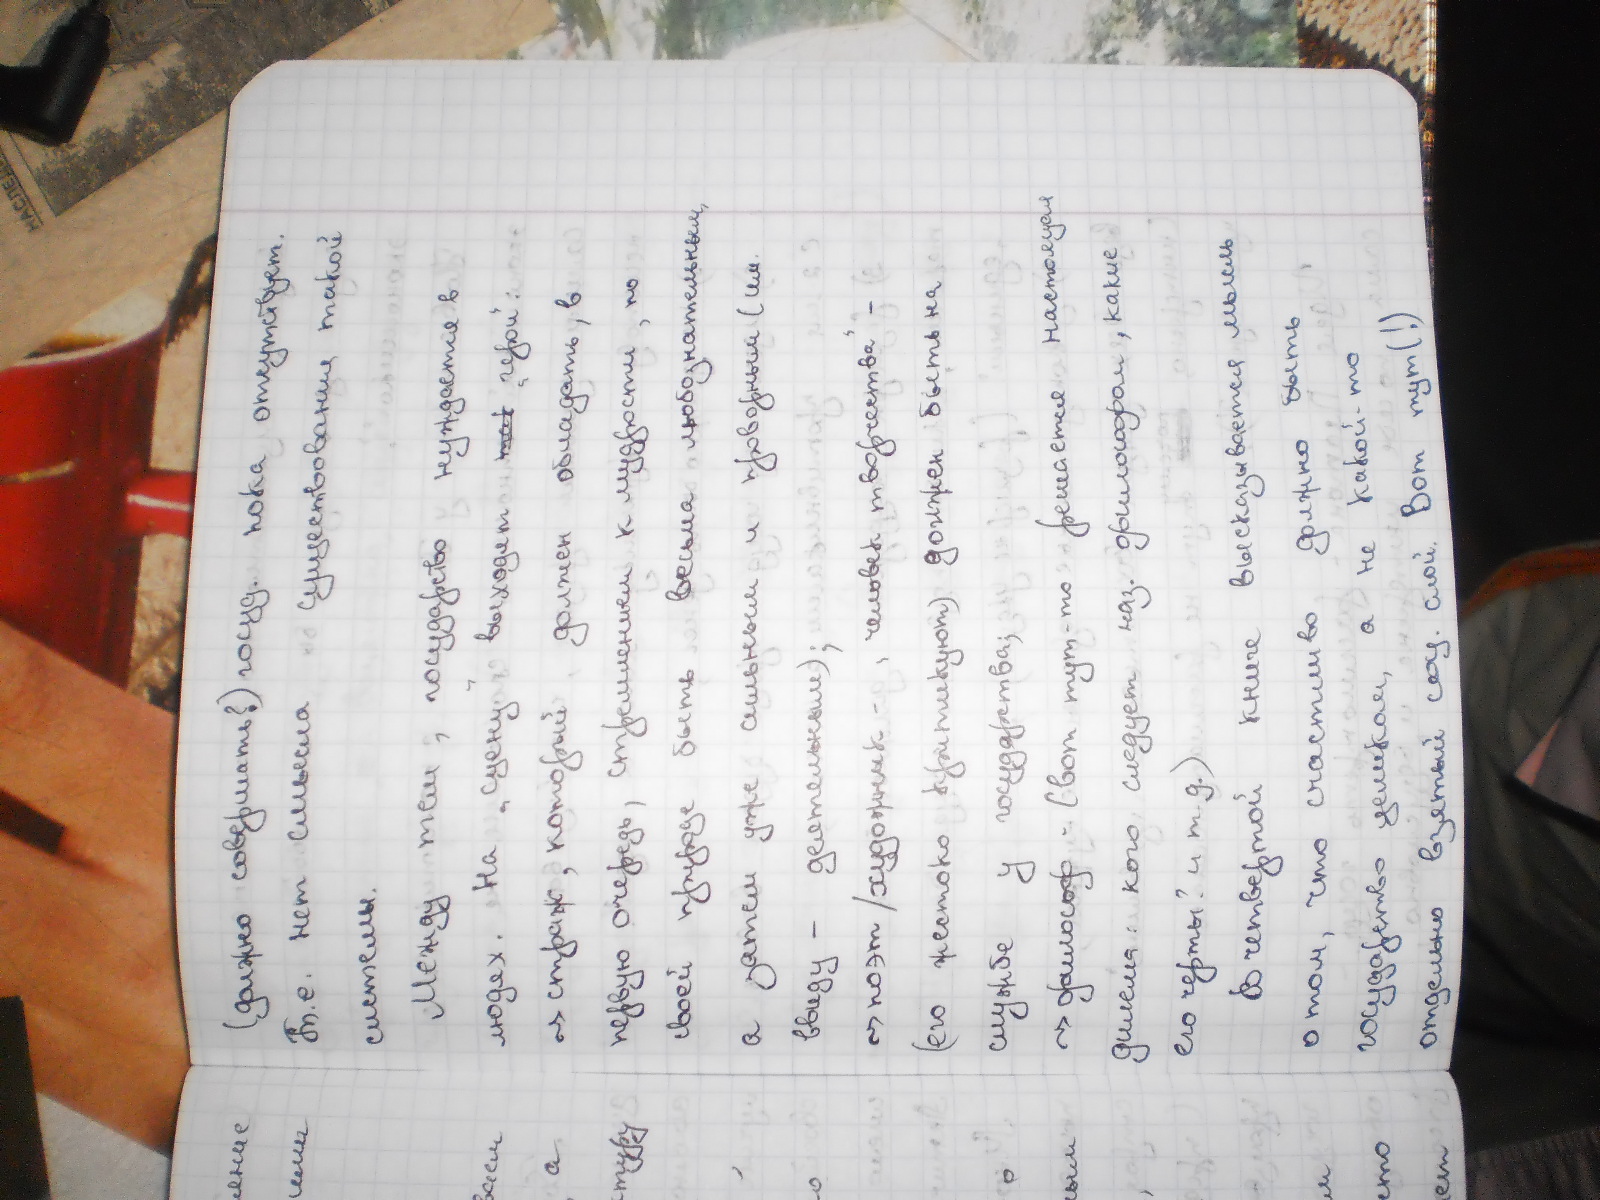 (должно совершать?) госуд. пока отсутствует.
Т.е. нет смысла существования такой
системы.
Между тем, государство нуждается в
людях. На "сцену" выходят "герои":
~> страж, который должен обладать, в
первую очередь, стремлением к мудрости, по
своей природе быть весьма любознательным,
а затем уже сильным и проворным (им.
ввиду – деятельным);
~> поэт/художник -, "человек творчества" -
(его жестоко критикуют) должен быть на
службе у государства;
~> философ - (вот тут-то решается настоящая
дилемма: кого следует наз. философом, какие
его черты? и т.д.)
В четвертой книге высказывается мысль
о том, что счастливо должно быть
государство целиком, а не какой-то
отдельно взятый соц. слой. Вот тут(!)
ваем
а
НАСЛЕ